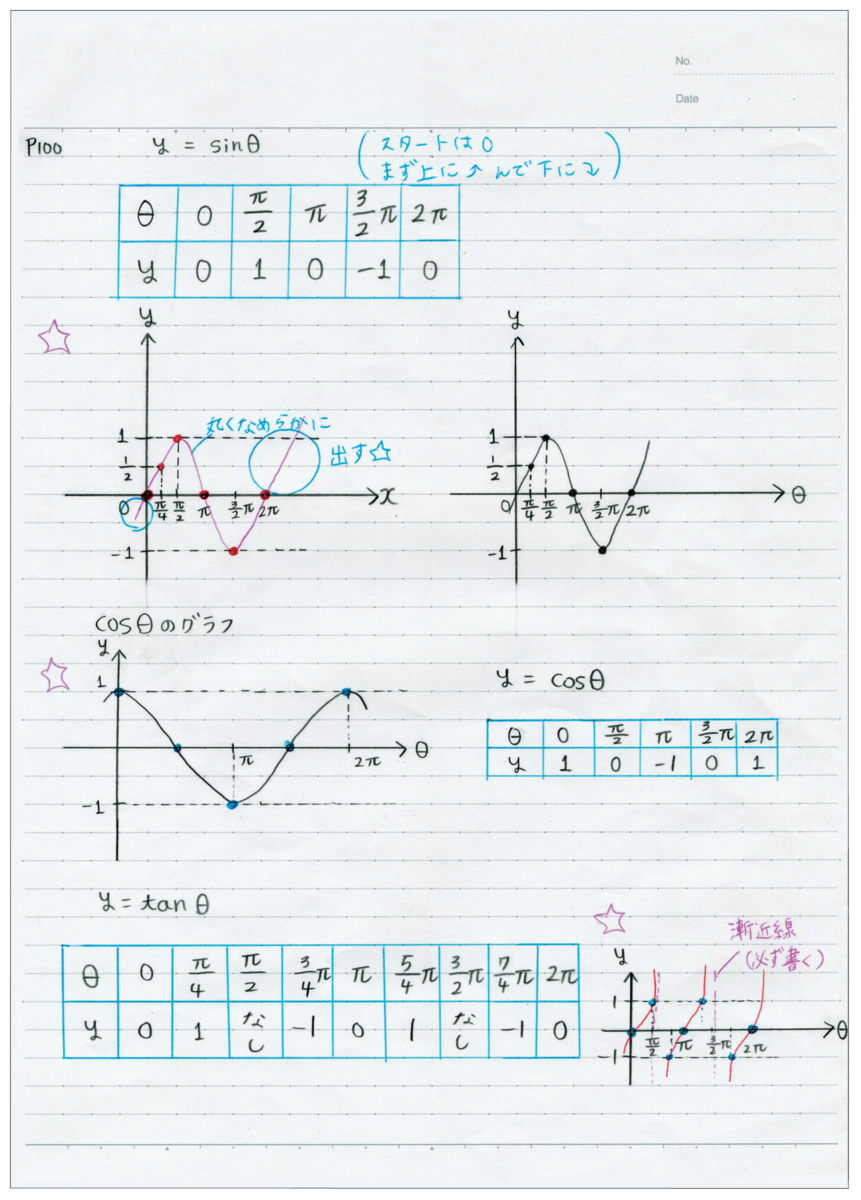 No.
Date
P100
y = sinθ
(スタートは0
まず上に↗んで下に↘)
θ 0 π/2 π 3/2π 2π
y 0 1 0 -1 0
y
丸くなめらかに
出す☆
1
1/2
0 π/4 π/2 π 3/2π 2π x
-1
y
1
1/2
0 π/4 π/2 π 3/2π 2π θ
-1
cosθのグラフ
y
1
π 2π θ
-1
y = cosθ
θ 0 π/2 π 3/2π 2π
y 1 0 -1 0 1
y = tanθ
θ 0 π/4 π/2 3/4π π 5/4π 3/2π 7/4π 2π
y 0 1 なし -1 0 1 なし -1 0
漸近線
(必ず書く)
y
1
π/2 π 3/2π 2π θ
-1